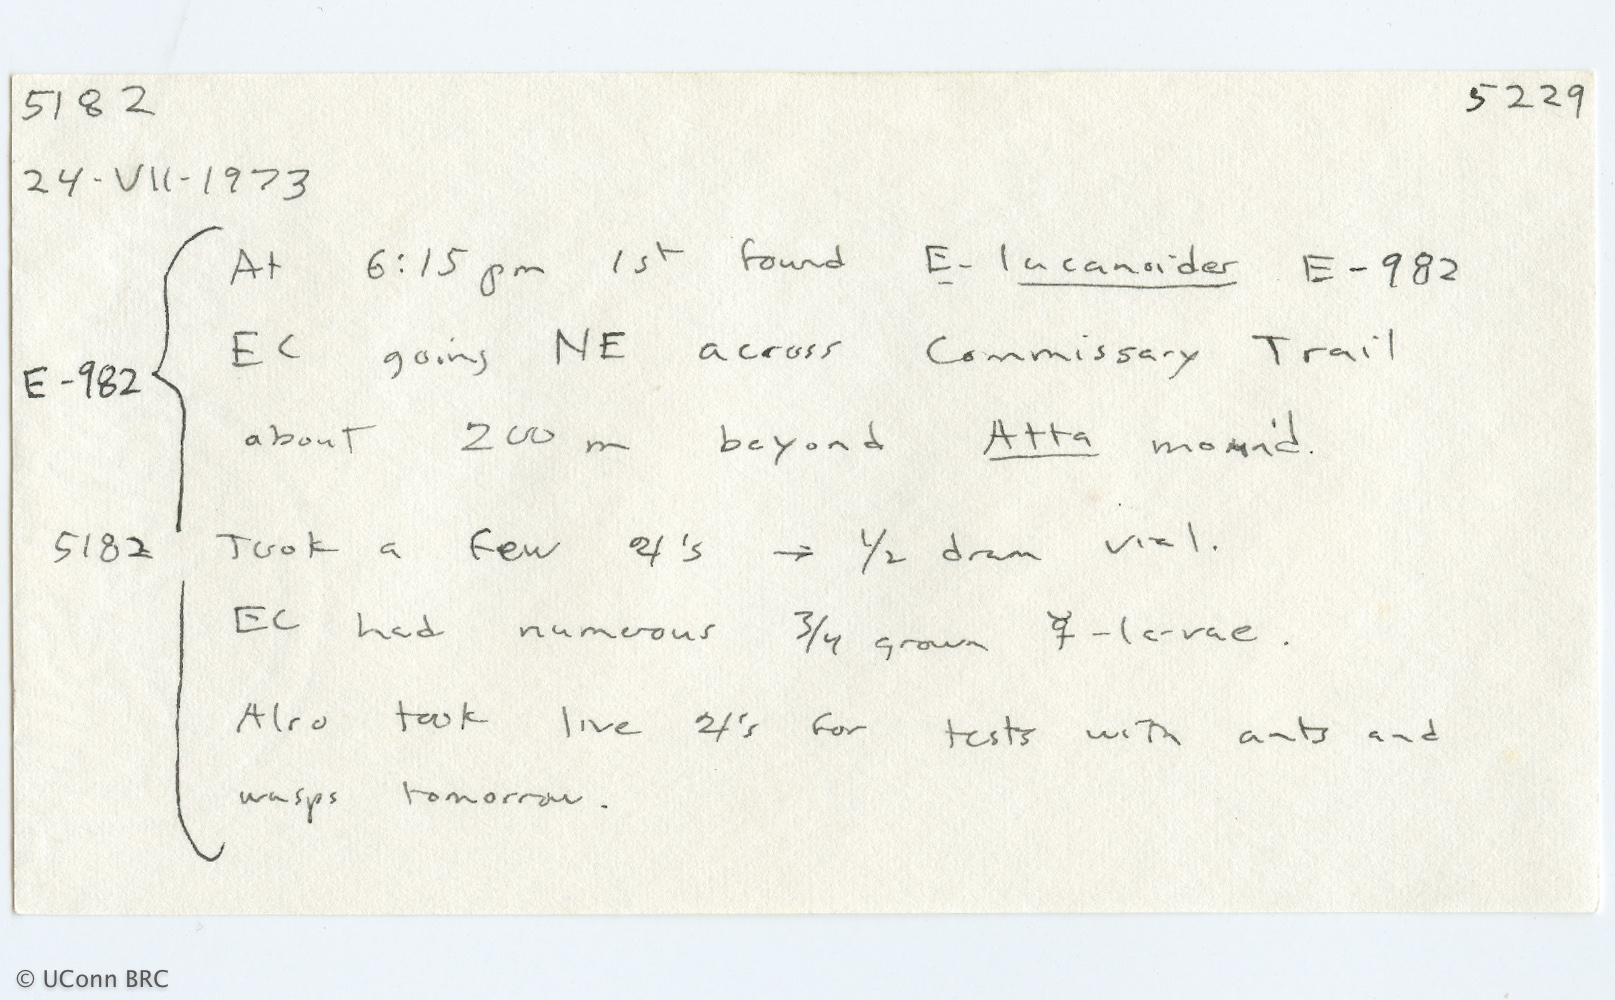 5182 5229
24-VII-1973
At 6:15 pm 1st found E. lucanoides E-982
EC going NE across Commissary Trail
E-982
about 200 m beyond Atta mound.
5182 Took a few ♃'s → 1/2 dram vial.
EC had numerous 3/4 grown ☿-larvae.
Also took live ♃'s for tests with ants and
wasps tomorrow.
© UConn BRC